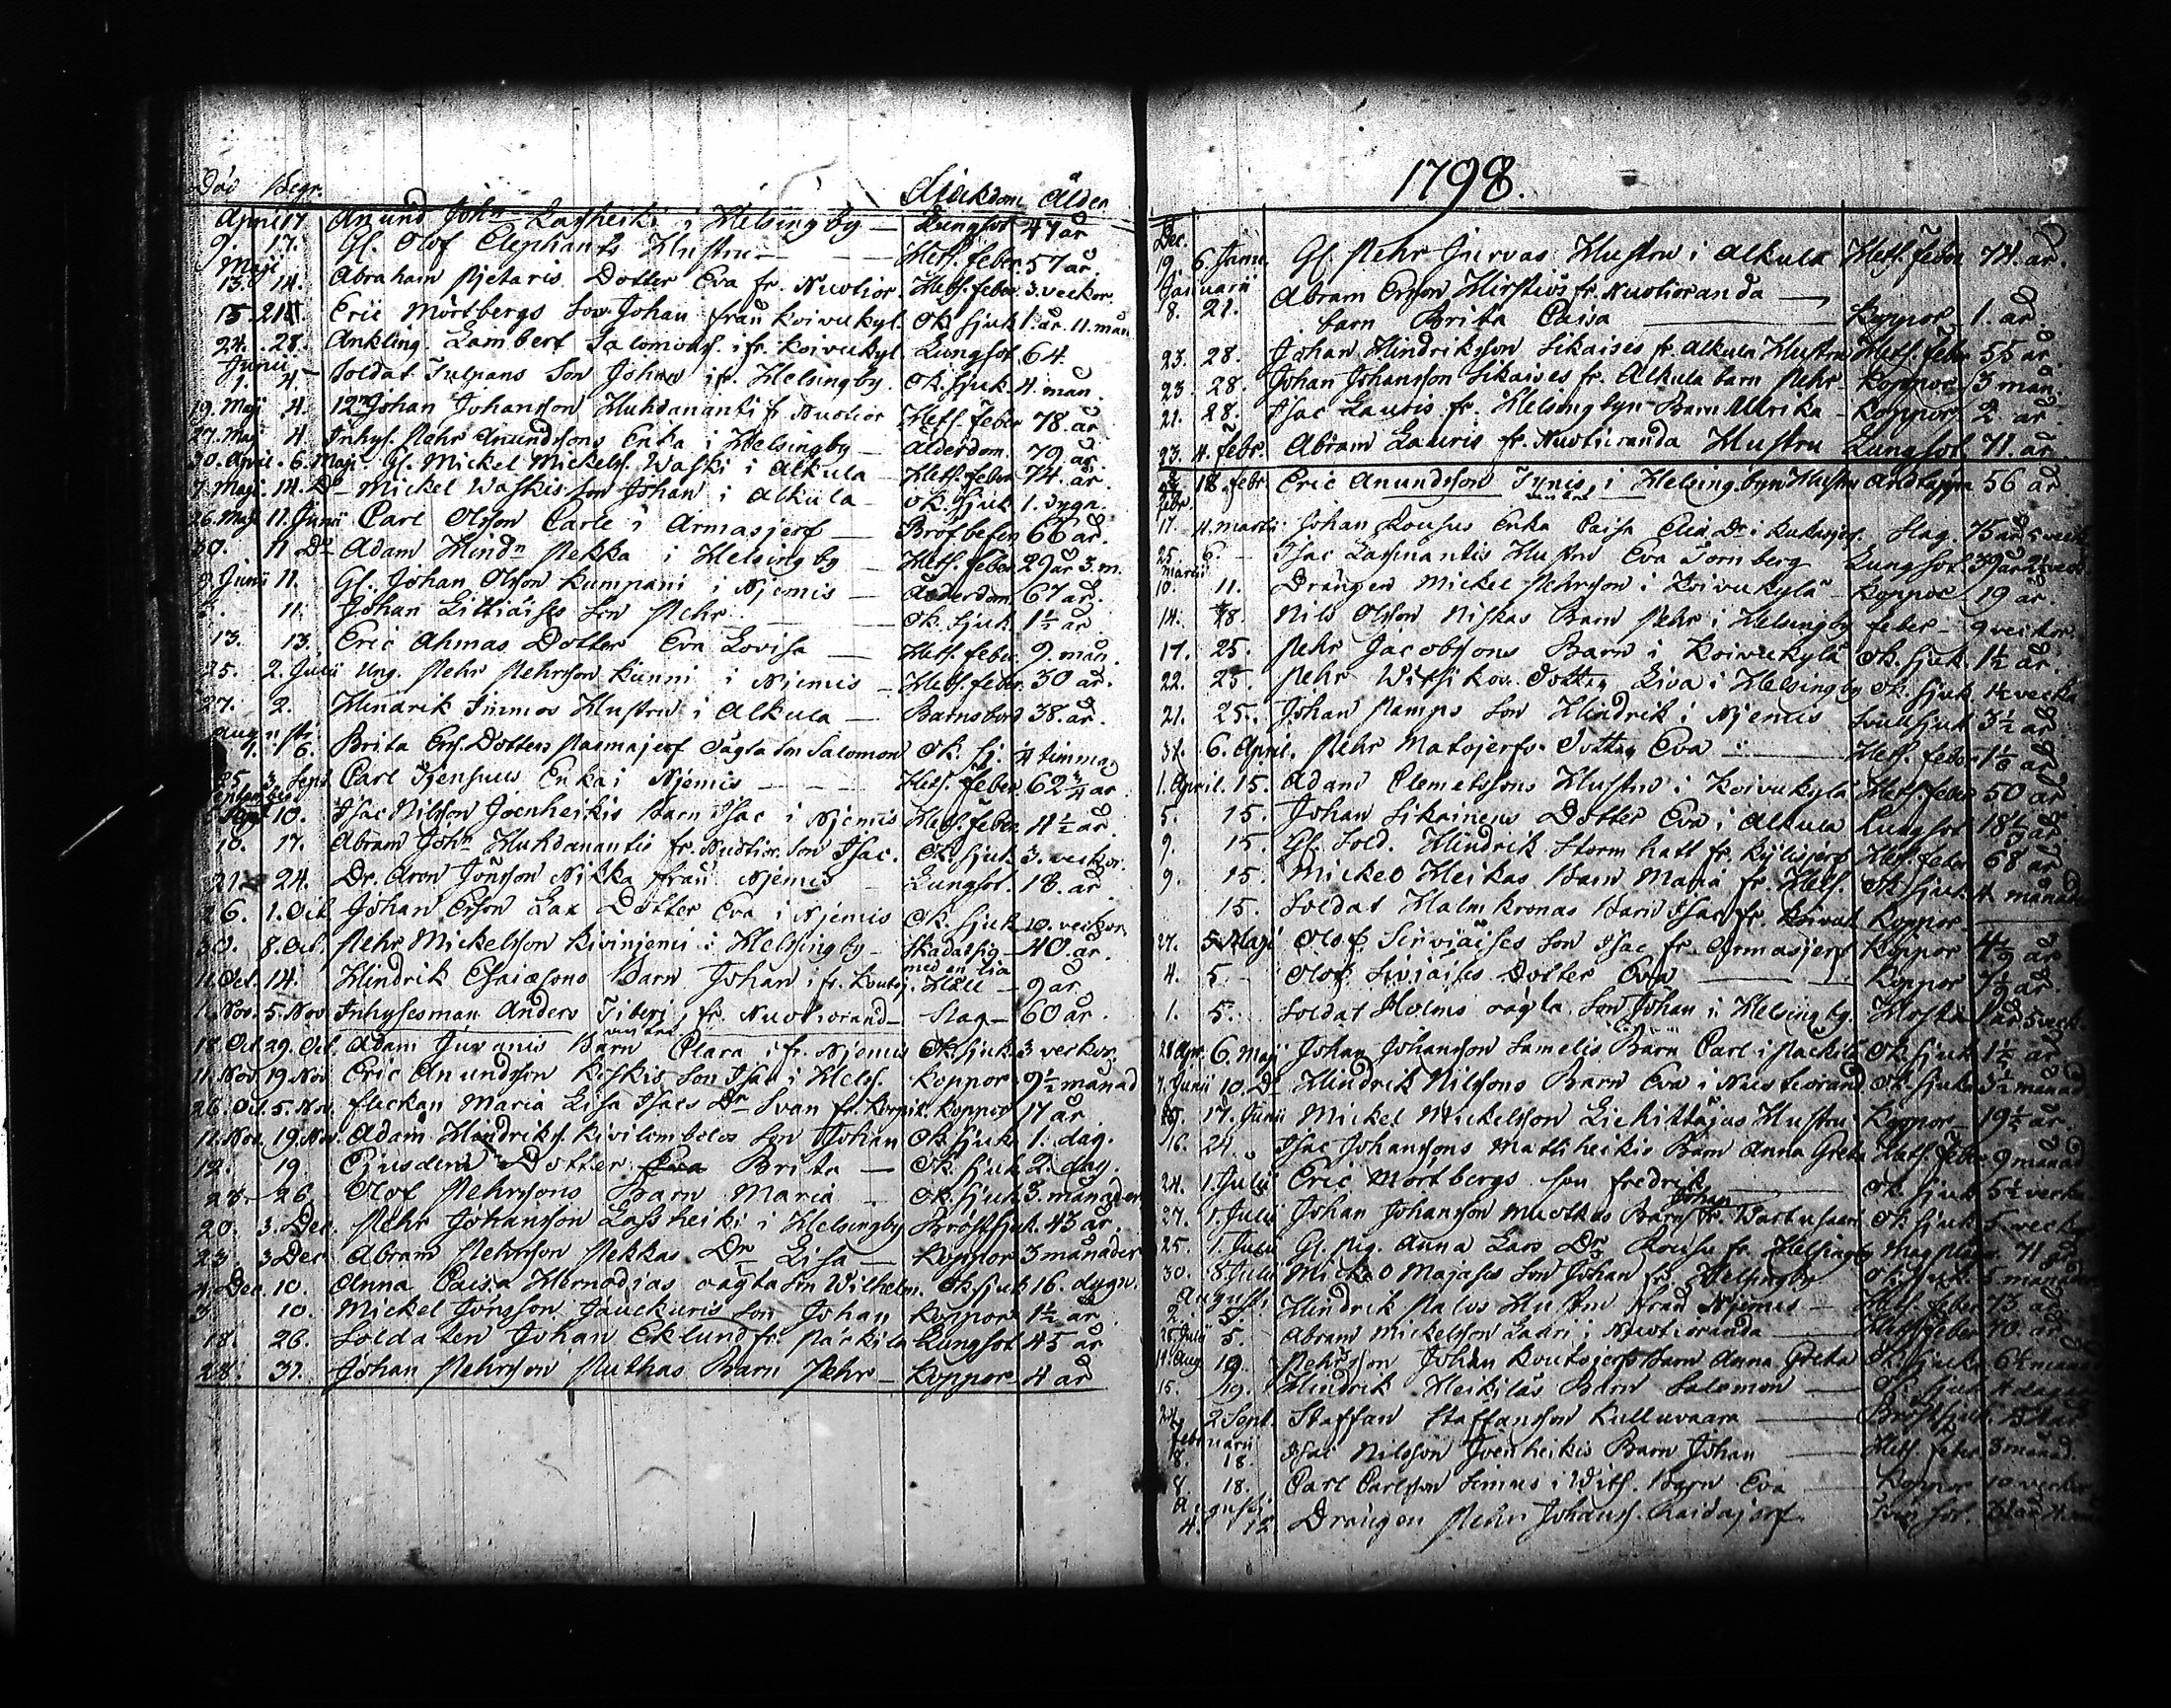 Död Begr. Sjukdom Ålder
April 17 Anund Joh:n Lassheiki i Helsingby Lungsot 47 år
9. 17. Gl. Olof Elephants Hustru Hets. feber 57 år.
Maji
13. 14. Abraham Pjetaris Dotter Eva fr. Nuotior. Hets. feber 3. veckor.
15 21 Eric Mörtbergs Son Johan från Koivukyl. Ok. sjuk 1. år. 11. mån
24. 28. Ankling Lambert Salomons. i fr. Koivukyl Lungsot 64.
Junii
1. 4. Soldat Tulpans Son Johan i fr. Helsingby. Ok. sjuk 4. mån.
19. Maij 4. Johan Johansson Huhdananti fr Nuotior Hets. feber 78. år
27. Maij 4. Inhys. Pehr Anundssons Enka i Helsingby Ålderdom. 79 år.
30. April. 6. Maji Gl. Mickel Mickelss. Waski i Alkula Hets. feber 74. år.
7. Maji. 14. D:o Mickel Waskis Son Johan i Alkula ok. sjuk 1. dygn.
26. Maji 11. Junii Carl Olsson Carle i Armasjerf Bröfbefen 66 år.
30. 11 D:o Adam Hind:n Pekka i Helsingby Hets. feber. 29 år 3. m.
Junii 11. Gl. Johan Olsson Kumpani i Njemis Ålderdom 67 år.
11. Johan Littiäises Son Pehr Ok. sjuk. 1½ år
13. 13. Eric Ahmas Dotter Eva Lovisa Hets. feber 9. mån.
25. 2. Julii Ung. Pehr Pehrsson Kunni i Njemis Hets. feber. 30 år.
27. 2. Hindrik Simmos Hustru i Alkula Barnsbörd 38. år.
Augusti
6. Brita Ers. Dotters Pasmajerf oägta son Salomon Ok. sj. 4 timmar
25. 3 Sept. Carl Enka i Njemis Hets. feber. 62¾ år
September
10. Isac Nilsson Joenheikis Barn Isac i Njemis Hets. feber. 4½ år.
10. 17. Abram Joh:n Huhdanantis fr. Nuotior. Son Isac. Ok. sjuk 3. veckor
21. 24. Dr. Aron Jönsson Nikka från Njemis Lungsot. 18. år
26. 1. Oct. Johan Ersson Lax Dotter Eva i Njemis Ok. sjuk 10. veckor
30. 8. Oct. Pehr Mickelsson Kivinjemi i Helsingby Skadat sig med en lia 40. år.
11. Oct. 14. Hindrik Esaiæsons Barn Johan i fr. Koutoj. Håll 9 år.
1. Nov. 5. Nov Inhysesman Anders Tiberj, fr. Nuotiorand Slag 60 år.
18. Oct. 29. Oct. Adam Juvanis Barn Clara i fr. Njemis Ok. sjuk 3 veckor.
11. Nov 19 Nov Eric Anundsson Koskis Son Isac i Hels. Koppor 9½ månad
26. Oct. 5. Nov. flickan Maria Lisa Isacs Dr Svan fr. Korpik. Koppor 17 år
11. Nov. 19. Nov. Adam Hindriks. Kivilombolos Son Johan Ok. sjuk 1. dag.
12. 19. Ejusdem Dotter Eva Brita Ok. sjuk 2. dag.
23. 26. Olof Pehrssons Barn Maria Ok. sjuk 3. månader
20. 3. Dec. Pehr Johansson Lassheiki i Helsingby Bröstsjuk. 43 år.
23. 3 Dec. Abram Pehrsson Pekkas Dr Lisa Koppor 3 månader
4. Dec. 10. Anna Caisa Hernodias oägta Son Wilhelm. Ok. sjuk 16. dygn.
3. 10. Mickel Jönsson Jauckuris Son Johan Koppor 1½ år.
18. 26. Soldaten Johan Eklund fr. Päckilä Lungsot 45 år
28. 31. Johan Pehrsson Ruthas Barn Pehr Koppor 4 år
1798.
Dec.
19 6. Janu. Gl. Pehr Jurvas Hustru i Alkula Hets. feber 74. år.
Januarii
18. 21. Abram Ersson Hirstiös fr. Nuotioranda
barn Brita Caisa Koppor 1. år
23. 28. Johan Hindriksson Sikaises fr. Alkula Hustru Hets. feber 55 år
23. 28. Johan Johansson Sikaises fr. Alkula barn Pehr Koppor 3 mån.
21. 28. Isac Lauris fr. Helsingbyn Barn Ulrika Koppor 2. år
23. 4. febr. Abram Lauris fr. Nuotioranda Hustru Lungsot 71. år
18. febr. Eric Anundsson Tynis, i Helsingbyn Hustru Andtäppa 56 år
febr.
17. 4. martii Johan Rousus Enka Caisa Slag. 75 år 5 veck
25. 6. Isac Lassinantis Hustru Eva Tornberg Lungsot 39 år
Martii
10. 11. Drängen Mickel Pehrsson i Koivukylä Koppor 19 år.
14. 18 Nils Olsson Niskas Barn Pehr i Helsingby feber 9 veckor.
17. 25. Pehr Jacobssons Barn i Koivukylä Ok. sjuk. 1½ år.
22. 25. Pehr Witsikos Dotter Lisa i Helsingby Ok. sjuk vecka
21. 25. Johan Kamps Son Hindrik i Njemis Svullsjuk 3½ år
31. 6. April. Pehr Matojerfs Dotter Eva Hets. feber 1½ år
1. April. 15. Adam Clemetssons Hustru i Koivukylä Hets. feber 50 år
5. 15. Johan Sikainens Dotter Eva i Alkula Lungsot 18½ år
9. 15. Gl. Sold. Hindrik Stormhatt fr. Kylisjerf Hets. feber 68 år
9. 15. Mickel Heikas Barn Maria fr. Hels. Ok. sjuk. 4 månad
15. Soldat Halmkronas Barn Isac fr. Koivuk Koppor
27. 5. Maji Olof Sirviäises Son Isac fr. Armasjerf Koppor 4½ år
4. 5. Olof Siviäises Dotter Eva Koppor 7½ år.
1. 5. Soldat Holms oägta Son Johan i Helsingby. Hosta 1 år 5 veck.
28 Apr. 6. Maji Johan Johansson Samelis Barn Carl i Päckilä Ok. sjuk 1½ år
7. Junii 10. D:o Hindrik Nilssons Barn Eva i Nuotiorand Ok. sjuk 3½ månad.
10. 17. Junii Mickel Mickelsson Liehittäjas Hustru Koppor 19½ år.
16. 24. Isac Johanssons Mattiheikis Barn Anna Greta Hets. feber 9 månad
24. 1. Julii Eric Mörtbergs son Fredrik Ok. sjuk 5½ veckor
27. 1. Julii Johan Johansson Muotkas Barn Johan fr. Ok. sjuk 5. veckor
25. 1. Julii Gl. Pig. Anna Lars Dr. Rousu fr. Helsingby Magplågor. 71 år
30. 8 Julii Mickel Majases Son Johan fr. Helsingby Ok. sjuk. 5 månader
Augusti
2. 5. Hindrik Palos Hustru från Njemis Hets. feber 73 år
25 Julii 5. Abram Mickelsson Lauri i Nuotioranda Hets. feber 70. år
11. Aug. 19. Pehrsson Johan Koutojerfs barn Anna Greta Ok. sjuk 6½ månad
15. 19. Hindrik Heikiläs Barn Salomon Ok. sjuk 4 dagar
24. 2 Sept. Staffan Staffansson Kulluvaara Bröstsjuk.
Februarii
8. 18. Isac Nilsson Joenheikis Barn Johan Hets. feber 8 månad.
8. 18. Carl Carlsson Simmus i Wits. Barn Eva Koppor 10 veckor
Augusti
4. 12. Drängen Pehr Johanss. Raidajerf